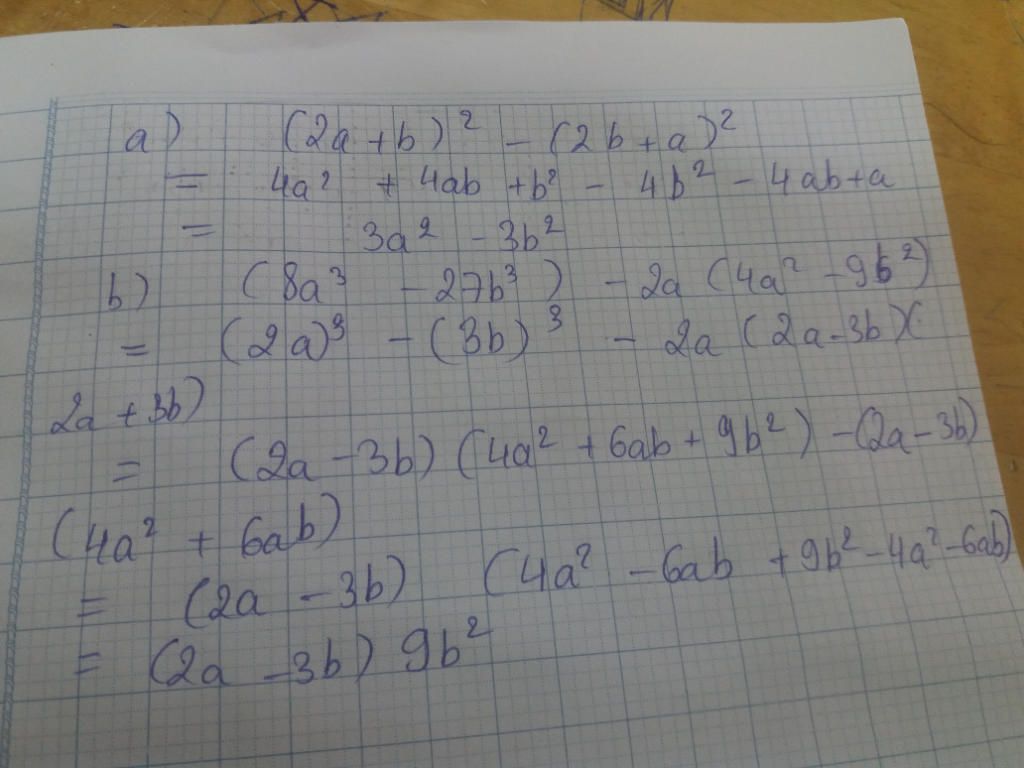 a) (2a+b)² - (2b+a)²
= 4a² + 4ab + b² - 4b² - 4ab+a
= 3a² - 3b²
b) (8a³ - 27b³) - 2a (4a² - 9b²)
= (2a)³ - (3b)³ - 2a (2a-3b)(
2a + 3b)
= (2a - 3b) (4a² + 6ab + 9b²) - (2a - 3b)
(4a² + 6ab)
= (2a - 3b) (4a² - 6ab + 9b² - 4a² - 6ab)
= (2a - 3b) 9b²